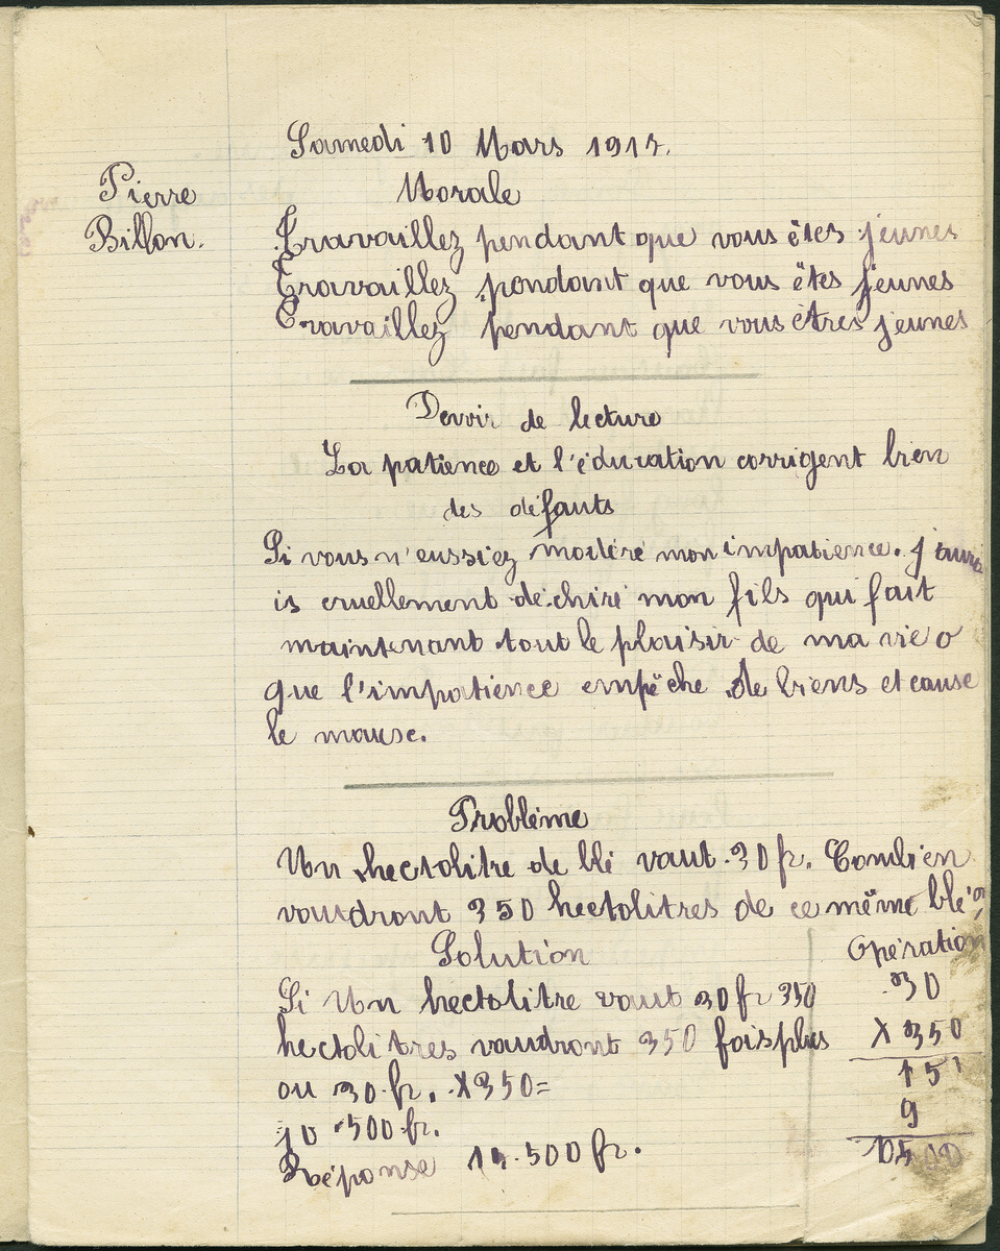 Samedi 10 Mars 1917.
Pierre
Billon.
Morale
Travaillez pendant que vous êtes jeunes
Travaillez pendant que vous êtes jeunes
Travaillez pendant que vous êtres jeunes
Devoir de lecture
La patience et l'éducation corrigent bien
des défauts
Si vous n'eussiez modéré mon impatience. j'aura
is cruellement déchiré mon fils qui fait
maintenant tout le plaisir de ma vie o
que l'impatience empêche de biens et cause
le mause.
Problème
Un hectolitre de blé vaut 30 fr. Combien
vaudront 350 hectolitres de ce même blé?
Solution
Si Un hectolitre vaut 30 fr 350
hectolitres vaudront 350 fois plus
ou 30 fr. X 350 =
10 500 fr.
Réponse 10.500 fr.
Opération
30
X 350
15
9
10500